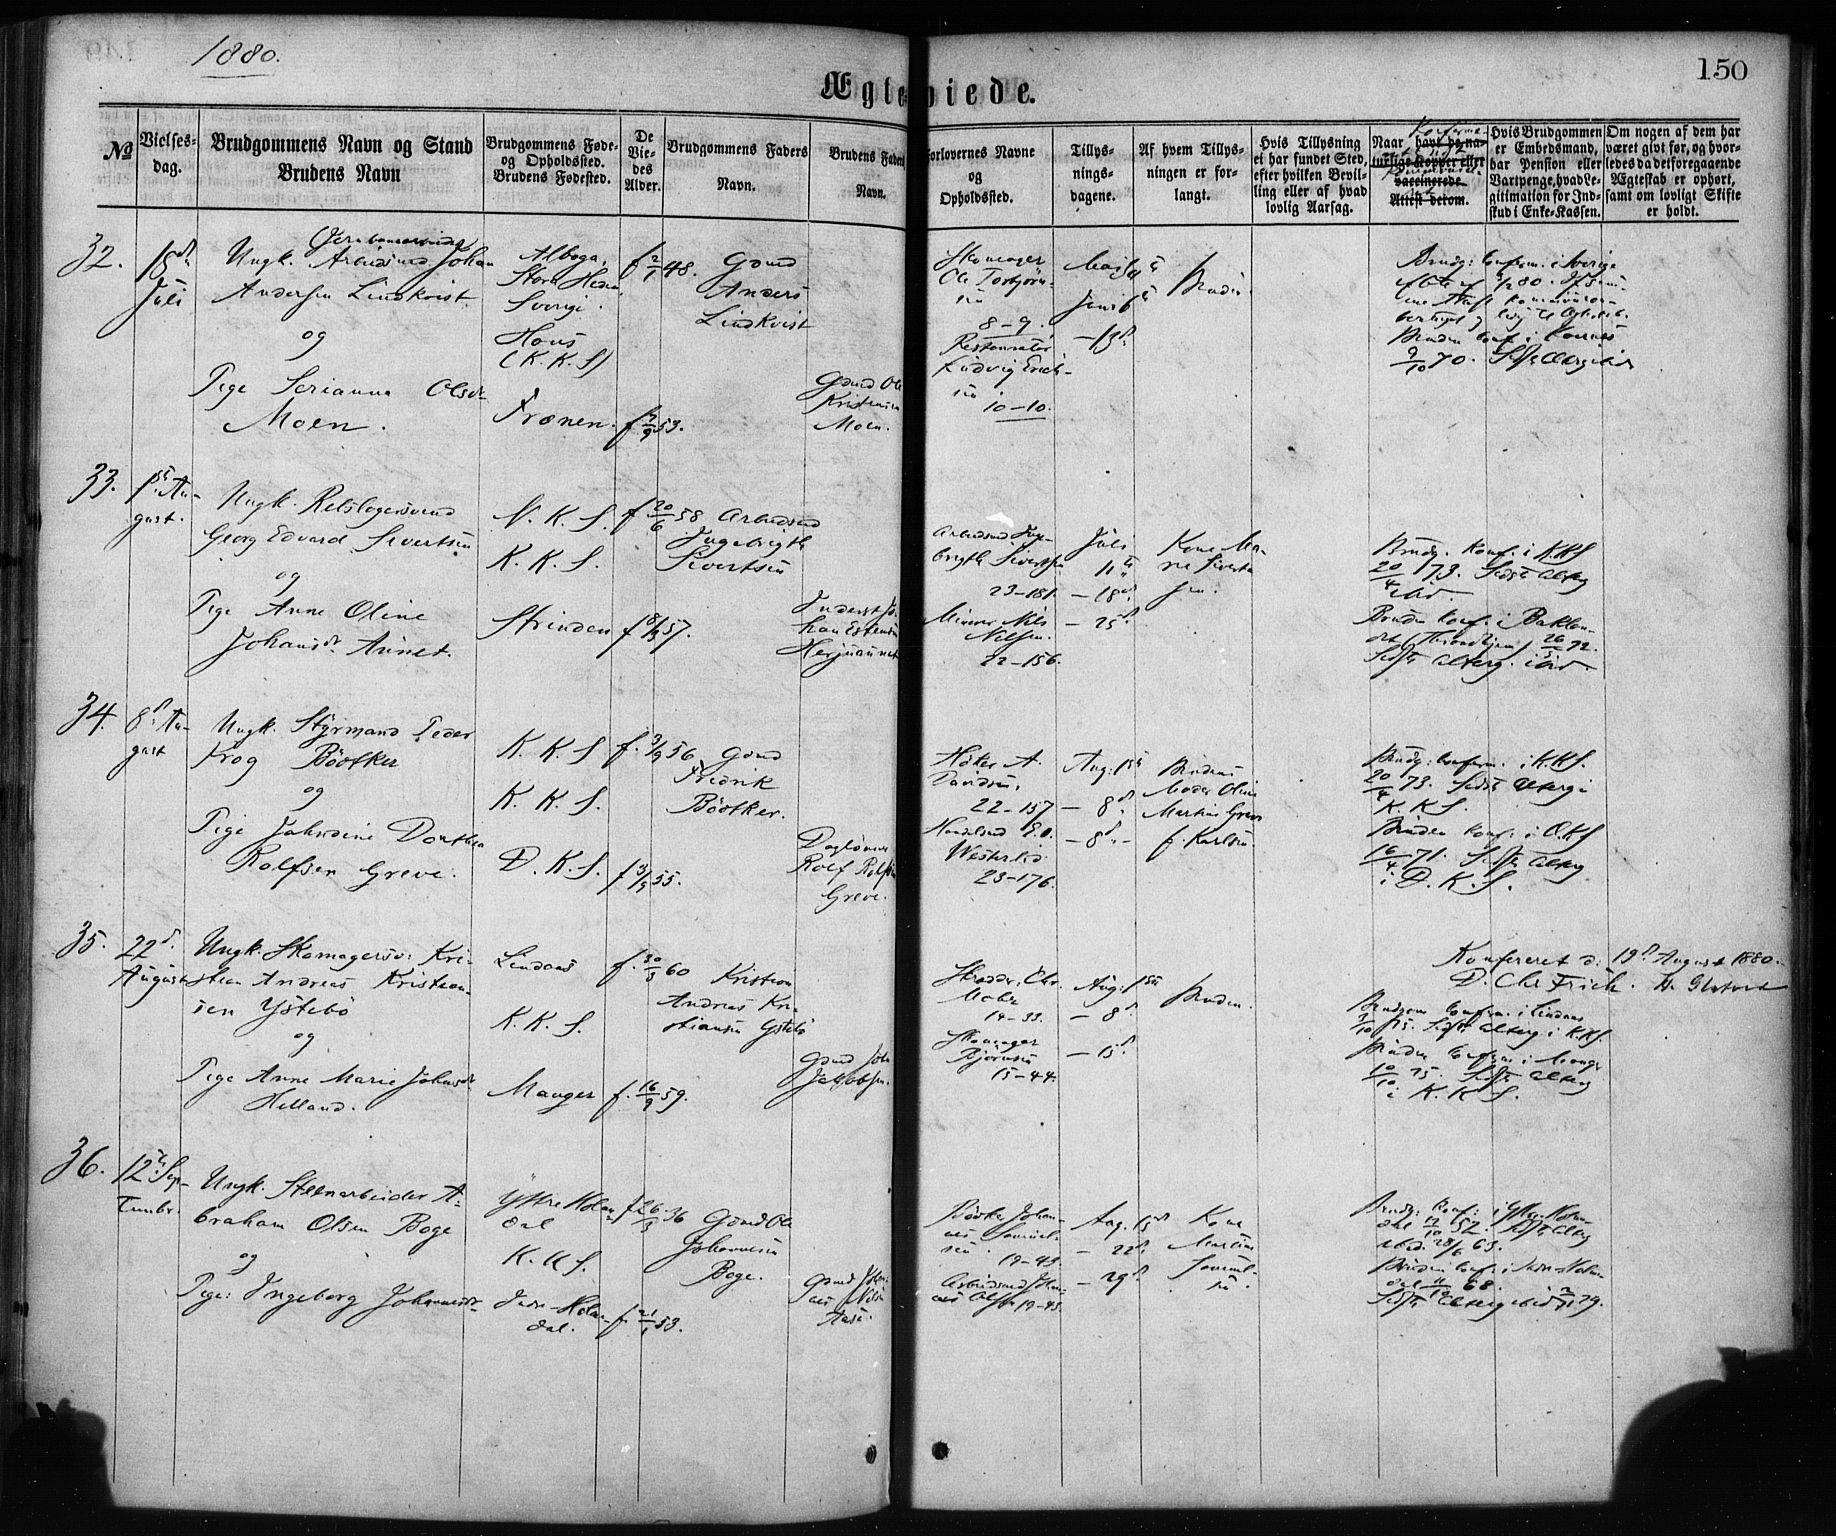 1880.
150
Ægteviede.
No
Vielses-
dag.
Brudgommens Navn og Stand
Brudens Navn
Brudgommens Føde-
og Opholdssted.
Brudens Fødested.
De
Vie-
des
Alder.
Brudgommens Faders
Navn.
Brudens Faders
Navn.
Forlovernes Navne
og
Opholdssted.
Tillys-
nings-
dagene.
Af hvem Tillys-
ningen er for-
langt.
Hvis Tillysning
ei har fundet Sted,
efter hvilken Bevil-
ling eller af hvad
lovlig Aarsag.
Naar
havt de na-
turlige Kopper eller
vaccinerede.
Attest derom.
Hvis Brudgommen
er Embedsmand,
har Pension eller
Vartpenge, hvad Le-
gitimation for Ind-
skud i Enke-Kassen.
Om nogen af dem har
været gift før, og hvor-
ledes da det foregaaende
Ægteskab er ophørt,
samt om lovligt Skifte
er holdt.
32.
18de
Juli
Ungk. Arbeidsmd Johan
Andersen Lindkvist
og
Pige Serianna Olsdr
Moen.
Alboga,
Sverige.
Hous
(K. K. S)
Frænen.
f 2/1 48.
f 53.
Gmd
Anders
Lindkvist
Gmd Ole
Kristensen
Moen.
Skomager
Ole Torbjørn-
sen
8-9.
Restauratør
Ludvig Erich-
sen
10-10.
- 13de
Bruden
Brudg: konfirm. i Sverige
9/10 70.
33.
1ste Au-
gust.
Ungk. Rebslagersvend
Georg Edvard Sivertsen
og
Pige Anne Oline
Johansdr Aunet.
N. K. S.
K. K. S.
Strinden
f 20/6 58
f 57.
Arbeidsmd
Ingebrigth
Sivertsen
Inderst Jo-
han Estensen
Herjuaunet
Arbeidsmd Inge-
brigth Sivertsen
23-181.
Minerer Nils
Nielsen.
22-156.
Juli
11te
- 18de
- 25de
Kone Ma-
rie Siverts-
sen.
Brudg. konf. i K.K.S
20/4 73. Sidste Alterg
ibid.
Bruden konf. i Baklan-
det (Throndhjem) 26/5 72.
Sidste Alterg. ibid.
34.
8de Au-
gust
Ungk. Styrmand Peder
Krog Bödtker
og
Pige Jahrdine Dorthea
Rolfsen Greve.
K. K. S
K. K. S.
D. K. S.
f. 3/9 56
f 55.
Gmd
Fredrik
Bödtker.
Dagløner
Rolf Rolfsen
Greve.
Høker A.
Davidsen,
22-157
Handelsmd E.O.
Westerlid
23-176.
Aug: 1ste
- 8de
- 8de -
Brudens
Moder Oline
Martine Greve
f. Karlsen.
Brudg: konfirm. i K.K.S.
20/4 73. Sidste Alterg i
K. K. S.
Bruden konf. i D.K.S
16/4 71. Sidste Alterg
i D. K. S.
35.
22de
August
Ungk. Skomagersv: Kri-
stian Andreas Kristian-
sen Ystebö
og
Pige Anne Marie Johnsdr
Helland.
Lindaas
K. K. S.
Manger
f. 30/3 60
f. 16/9 59.
Kristian
Andreas Kri-
stiansen Ystebö
Gmd John
Jakobsen.
Skrædder Chr.
Mohr
14-33.
Skomager
Bjørnsen
15-44.
Aug: 1ste
- 8de
- 15de
Bruden.
Konfereret d: 19de August 1880.
D. Chr Frich.
Brudgom konfirm. i Lindaas
3/10 75. Sidste Alterg i K.K.S.
Bruden konfirm i Manger
10/10 75. Sidste Alterg
i K. K. S.
36.
12te Sep-
tember.
Ungk. Stenarbeider A-
braham Olsen Boge
og
Pige: Ingeborg Johannesdr
Ystre Holm-
dal
K. K. S.
Indre Holm-
dal.
f 26/3 36
f. 21/1 53.
Gmd Ole
Johannesen
Boge.
Gmd Johan-
nes Nilsen
Aase.
Bødker Johan-
nes Samuel-
sen.
19-43.
Arbeidsmd Johan-
nes Olsen 19-43.
Aug. 15de
- 22de
- 29de
Kone
Martine
Samuel-
sen.
Brudg: konf: i Ystre Holm-
dal 17/10 52. Sidste Alterg
ibid. 28/6 63.
Bruden konf. i Indre Holm-
dal 11/10 68.
Sidste Alterg ibid 79.